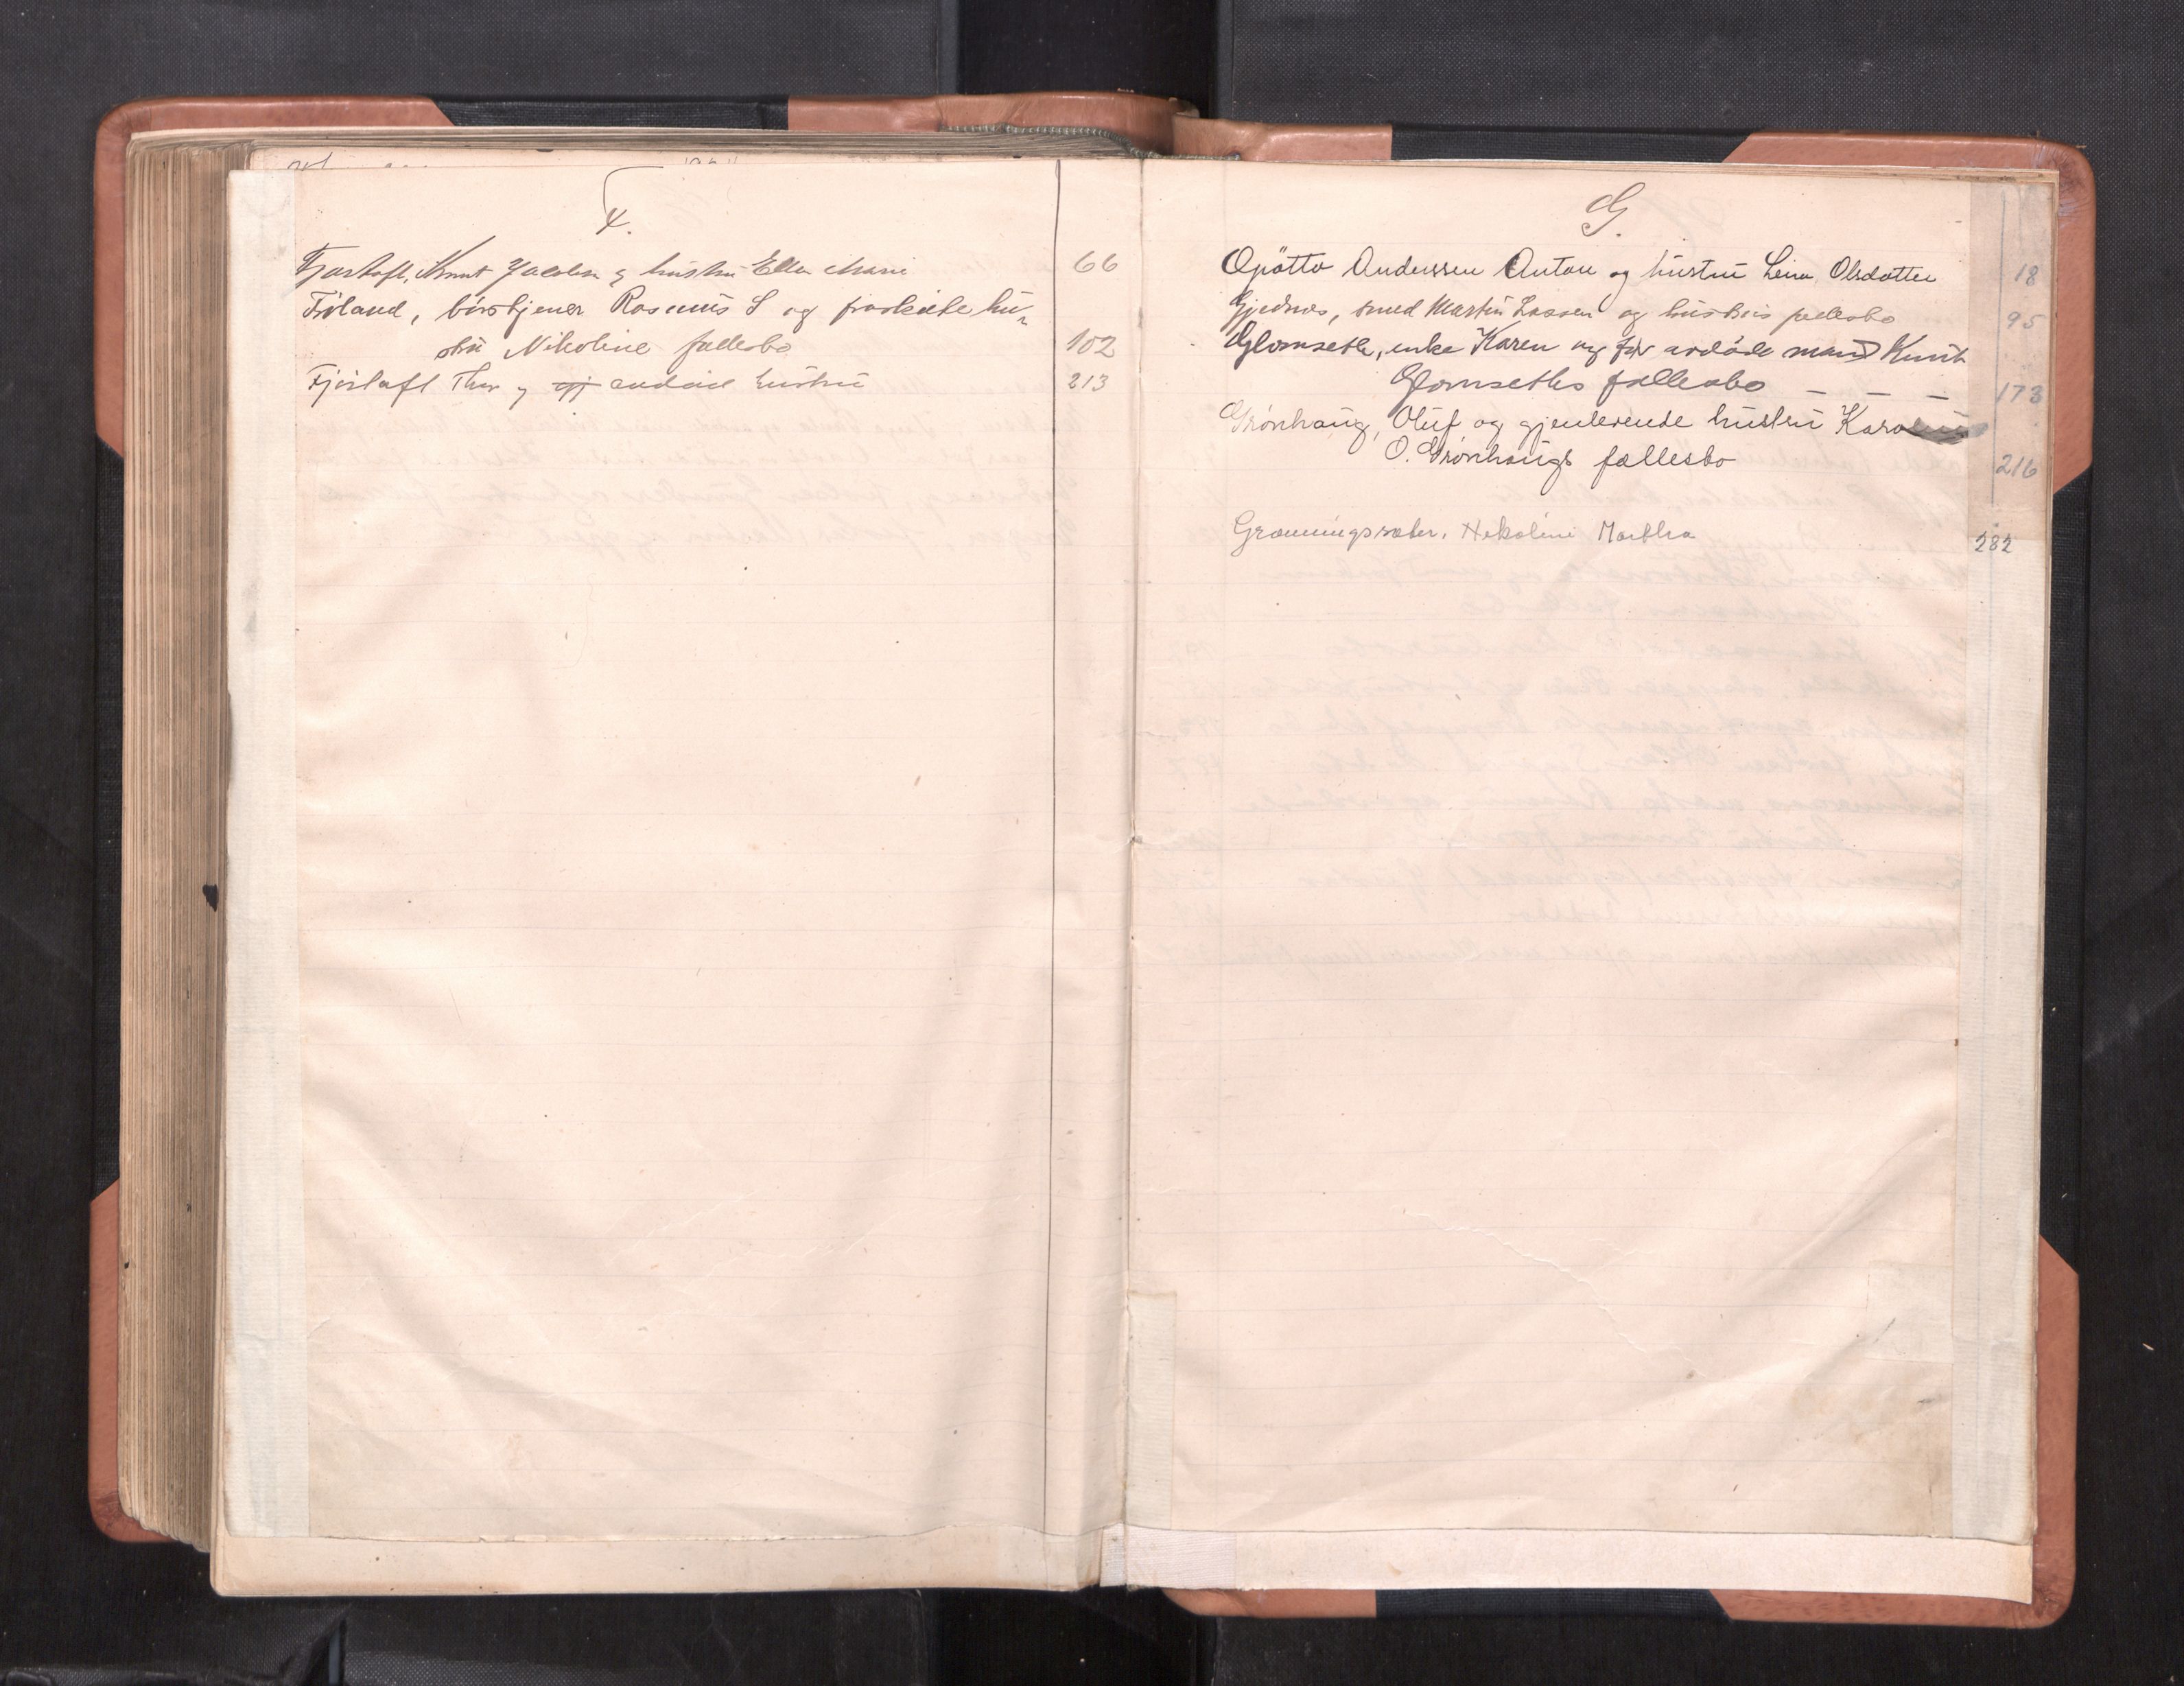 F.
Fjørtoft, Knut Jacobsen og hustru Ellen Marie 66
Fröland, börstjener Rasmus S og fraskilte hu-
stru Nikoline fællesbo 102
Fjørtoft Thor og gj avdøde hustru 213
G.
Gjötto Anderssen Anton og hustru Lina Olsdotter 18
Gjednes, smed Martin Lassen og hustrus fællesbo 95
Glomseth, enke Karen og før avdöde mand Knut
Glomseths fællesbo — — — 173
Grönhaug, Oluf og gjenlevende hustru Karoline
O. Grönhaugs fællesbo 216
Grønningsæter, Nikoline Martha 282